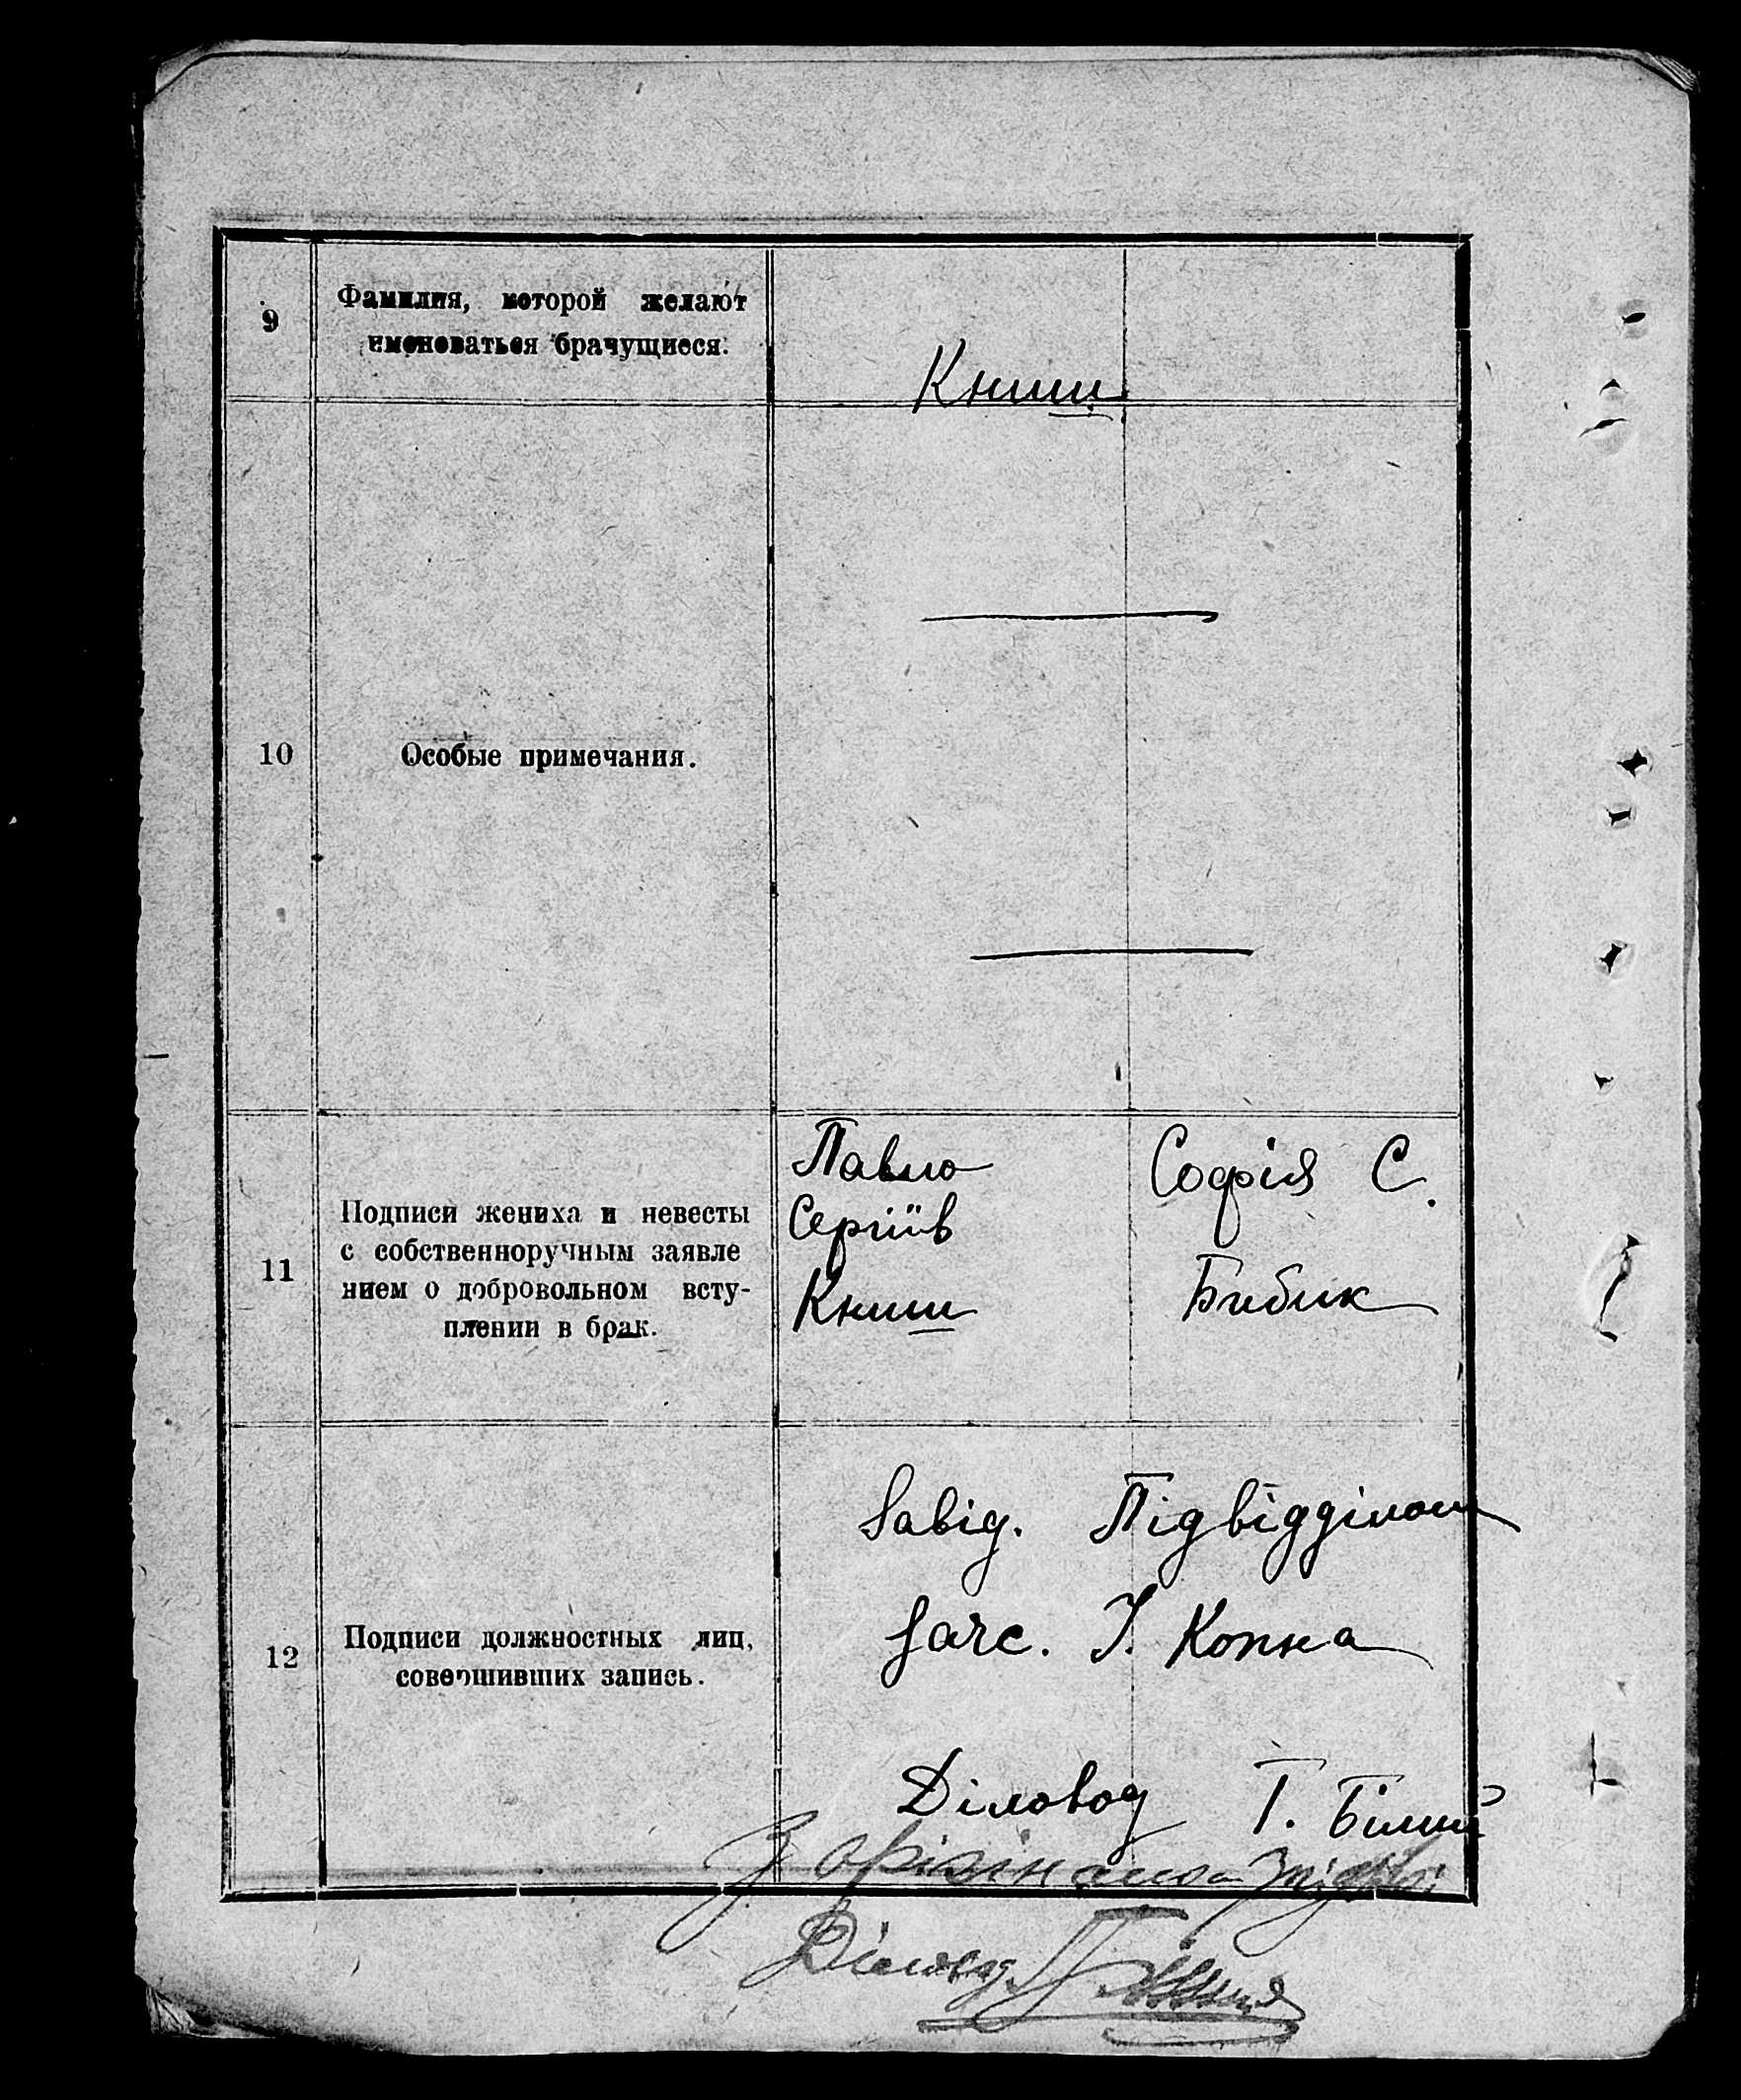 9
Фамилия, которой желают
именоваться брачущиеся.
Книш
10
Особые примечания.
11
Подписи жениха и невесты
с собственноручным заявле
нием о добровольном всту-
плении в брак.
Павло
Сергіїв
Книш
Софія С.
Бибик
12
Подписи должностных лиц,
совершивших запись.
Завід. Підвідділом
Загс. І. Копка
Діловод Г. Білий
З орігіналом згідно:
Діловод